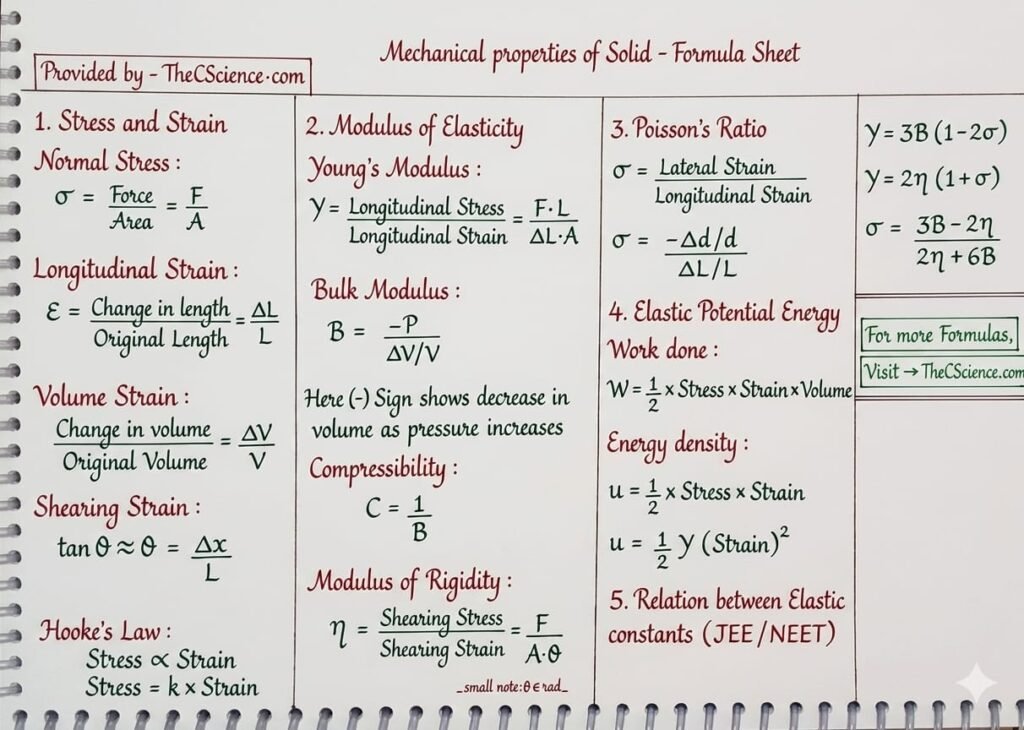 Mechanical properties of Solid - Formula Sheet
Provided by - TheCScience.com
1. Stress and Strain
Normal Stress :
σ = Force/Area = F/A
Longitudinal Strain :
ε = Change in length/Original Length = ΔL/L
Volume Strain :
Change in volume/Original Volume = ΔV/V
Shearing Strain :
tan θ ≈ θ = Δx/L
Hooke's Law :
Stress ∝ Strain
Stress = k × Strain
2. Modulus of Elasticity
Young's Modulus :
Y = Longitudinal Stress/Longitudinal Strain = F·L/ΔL·A
Bulk Modulus :
B = -P/ΔV/V
Here (-) Sign shows decrease in
volume as pressure increases
Compressibility :
C = 1/B
Modulus of Rigidity :
η = Shearing Stress/Shearing Strain = F/A·θ
_small note:θ ∈ rad_
3. Poisson's Ratio
σ = Lateral Strain/Longitudinal Strain
σ = -Δd/d/ΔL/L
4. Elastic Potential Energy
Work done :
W = 1/2 × Stress × Strain × Volume
Energy density :
u = 1/2 × Stress × Strain
u = 1/2 Y (Strain)²
5. Relation between Elastic
constants (JEE/NEET)
Y = 3B (1-2σ)
Y = 2η (1+σ)
σ = 3B - 2η/2η + 6B
For more Formulas,
Visit → TheCScience.com